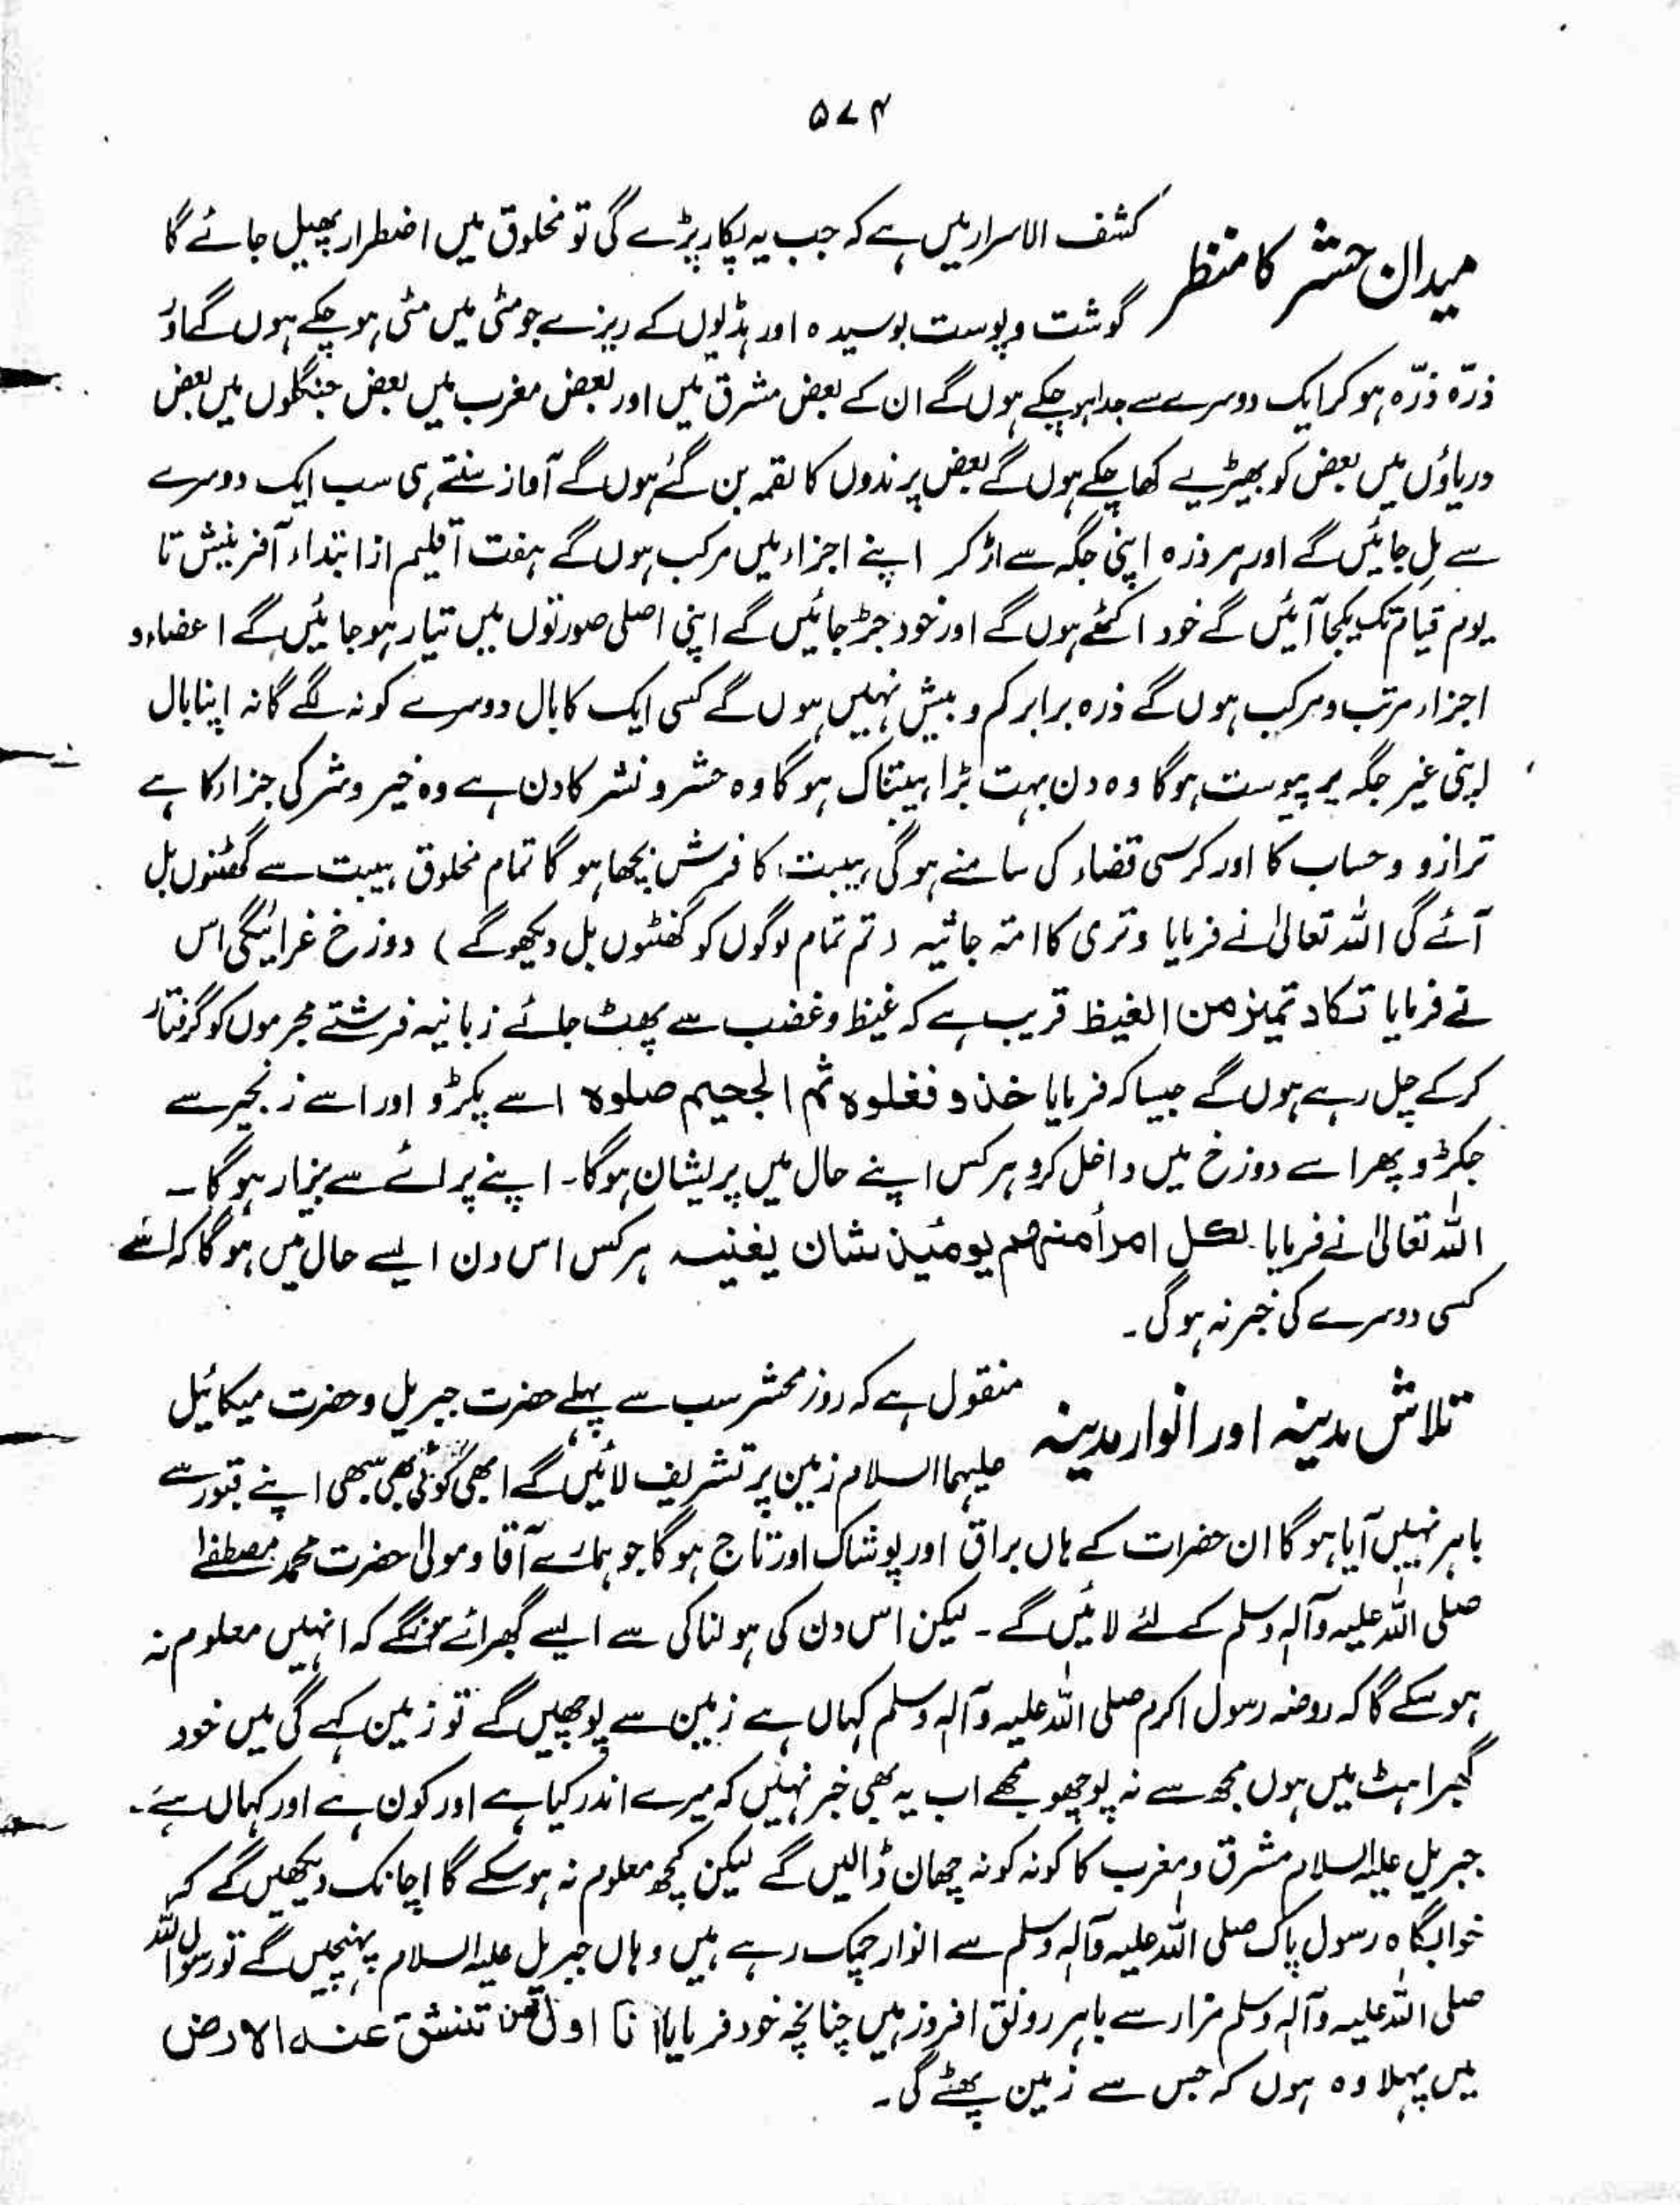 ۵۷۴
میدان حشر کا منظر
کشف الاسرار میں ہے کہ جب یہ پکار پڑے گی تو مخلوق میں اضطرار پھیل جائے گا
گوشت و پوست بوسیدہ اور ہڈیوں کے ریزے جو مٹی میں مٹی ہو چکے ہوں گے اور
ذرّہ ذرّہ ہو کر ایک دوسرے سے جدا ہو چکے ہوں گے ان کے بعض مشرق میں اور بعض مغرب میں بعض جنگلوں میں بعض
دریاؤں میں بعض کو بھیڑیے کھا چکے ہوں گے بعض پرندوں کا لقمہ بن گئے ہوں گے آواز سنتے ہی سب ایک دوسرے
سے مل جائیں گے اور ہر ذرہ اپنی جگہ سے اڑ کر اپنے اجزاء میں مرکب ہوں گے ہفت آقلیم از ابتداء آفرینش تا
یوم قیام تک یکجا آئیں گے خود اکٹھے ہوں گے اور خود جڑ جائیں گے اپنی اصلی صورتوں میں تیار ہو جائیں گے اعضاء و
اجزاء مرتب و مرکب ہوں گے ذرہ برابر کم و بیش نہیں ہوں گے کسی ایک کا بال دوسرے کو نہ لگے گا نہ اپنا بال
اپنی غیر جگہ پر پیوست ہوگا وہ دن بہت بڑا ہیبتناک ہوگا وہ حشر و نشر کا دن ہے وہ خیر و شر کی جزاء کا ہے
ترازو و حساب کا اور کرسی قضاء کی سامنے ہوگی ہیبت کا فرش بچھا ہوگا تمام مخلوق ہیبت سے گھٹنوں بل
آئے گی اللہ تعالیٰ نے فرمایا وتری کا امتہ جاثیہ (تم تمام لوگوں کو گھٹنوں بل دیکھو گے) دوزخ غرائیگی اس
نے فرمایا تکاد تمیز من الغیظ قریب ہے کہ غیظ و غضب سے پھٹ جائے زبانیہ فرشتے مجرموں کو گرفتار
کر کے چل رہے ہوں گے جیسا کہ فرمایا خذوہ فغلوہ ثم الجحیم صلوہ اسے پکڑو اور اسے زنجیر سے
جکڑو پھر اسے دوزخ میں داخل کرو ہر کس اپنے حال میں پریشان ہوگا۔ اپنے پرائے سے بیزار ہوگا۔
اللہ تعالیٰ نے فرمایا لکل امرأ منہم یومئیذ شان یغنیہ ہر کس اس دن ایسے حال میں ہوگا کہ اسے
کسی دوسرے کی خبر نہ ہوگی۔
تلاش مدینہ اور انوار مدینہ
منقول ہے کہ روز محشر سب سے پہلے حضرت جبریل و حضرت میکائیل
علیہما السلام زمین پر تشریف لائیں گے ابھی کوئی بھی سبھی اپنے قبور سے
باہر نہیں آیا ہوگا ان حضرات کے ہاں براق اور پوشاک اور تاج ہوگا جو ہمارے آقا و مولیٰ حضرت محمد مصطفےٰ
صلی اللہ علیہ وآلہ وسلم کے لئے لائیں گے۔ لیکن اس دن کی ہولناکی سے ایسے گھبرائے ہونگے کہ انہیں معلوم نہ
ہو سکے گا کہ روضہ رسول اکرم صلی اللہ علیہ وآلہ وسلم کہاں ہے زمین سے پوچھیں گے تو زمین کہے گی میں خود
گھبراہٹ میں ہوں مجھ سے نہ پوچھو مجھے اب یہ بھی خبر نہیں کہ میرے اندر کیا ہے اور کون ہے اور کہاں ہے۔
جبریل علیہ السلام مشرق و مغرب کا کونہ کونہ چھان ڈالیں گے لیکن کچھ معلوم نہ ہو سکے گا اچانک دیکھیں گے کہ
خوابگاہ رسول پاک صلی اللہ علیہ وآلہ وسلم سے انوار چمک رہے ہیں وہاں جبریل علیہ السلام پہنچیں گے تو رسول اللہ
صلی اللہ علیہ وآلہ وسلم مزار سے باہر رونق افروز ہیں چنانچہ خود فرمایا انا اول من تنشق عنہ الارض
میں پہلا وہ ہوں کہ جس سے زمین پھٹے گی۔